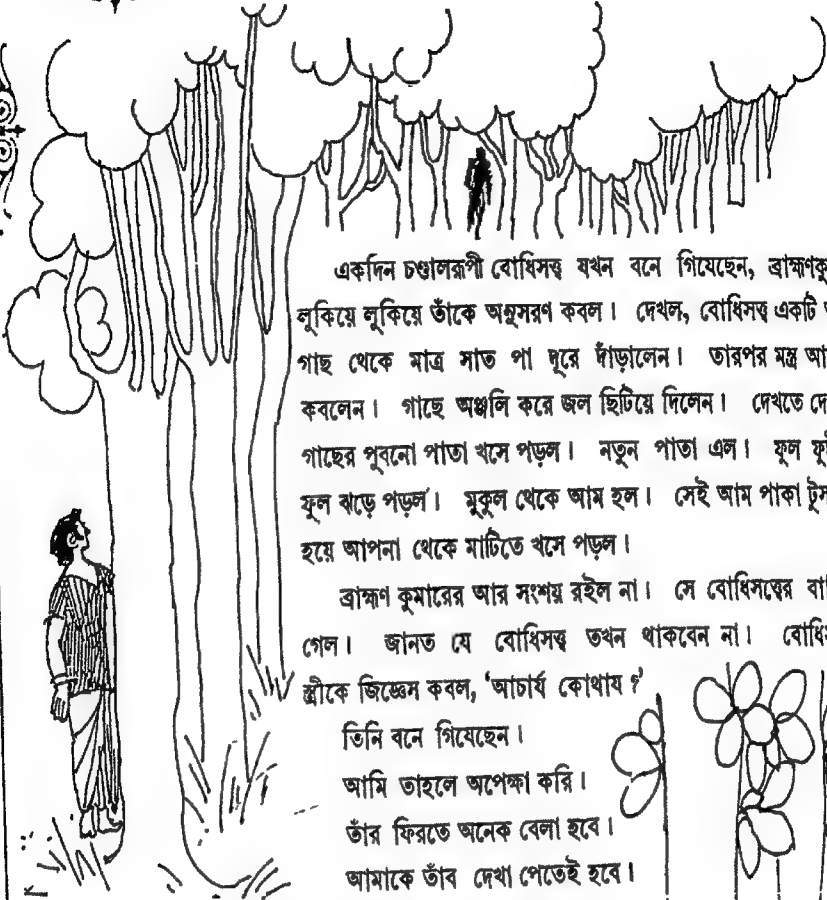 একদিন চণ্ডালরূপী বোধিসত্ত্ব যখন বনে গিযেছেন,
লুকিয়ে লুকিয়ে তাঁকে অনুসরণ কবল। দেখল, বোধিসত্ত্ব একটি
গাছ থেকে মাত্র সাত পা দূরে দাঁড়ালেন। তারপর মন্ত্র
কবলেন। গাছে অঞ্জলি করে জল ছিটিয়ে দিলেন। দেখতে
গাছের পুবনো পাতা খসে পড়ল। নতুন পাতা এল। ফুল
ফুল ঝড়ে পড়ল। মুকুল থেকে আম হল। সেই আম পাকা
হয়ে আপনা থেকে মাটিতে খসে পড়ল।
ব্রাহ্মণ কুমারের আর সংশয় রইল না। সে বোধিসত্ত্বের
গেল। জানত যে বোধিসত্ত্ব তখন থাকবেন না।
স্ত্রীকে জিজ্ঞেস কবল, ‘আচার্য কোথায ?’
তিনি বনে গিযেছেন।
আমি তাহলে অপেক্ষা করি।
তাঁর ফিরতে অনেক বেলা হবে।
আমাকে তাঁব দেখা পেতেই হবে।